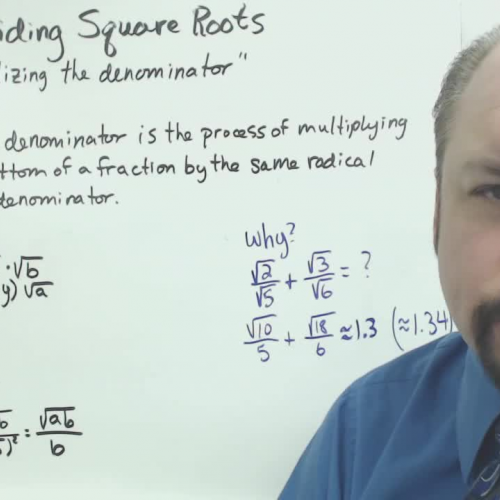 iding Square Roots
izing the denominator"
denominator is the process of multiplying
ttom of a fraction by the same radical
denominator.
why?
√2/√5 + √3/√6 = ?
√10/5 + √18/6 ≈1.3 (≈1.34)
·√b
y) √a
= √ab/b